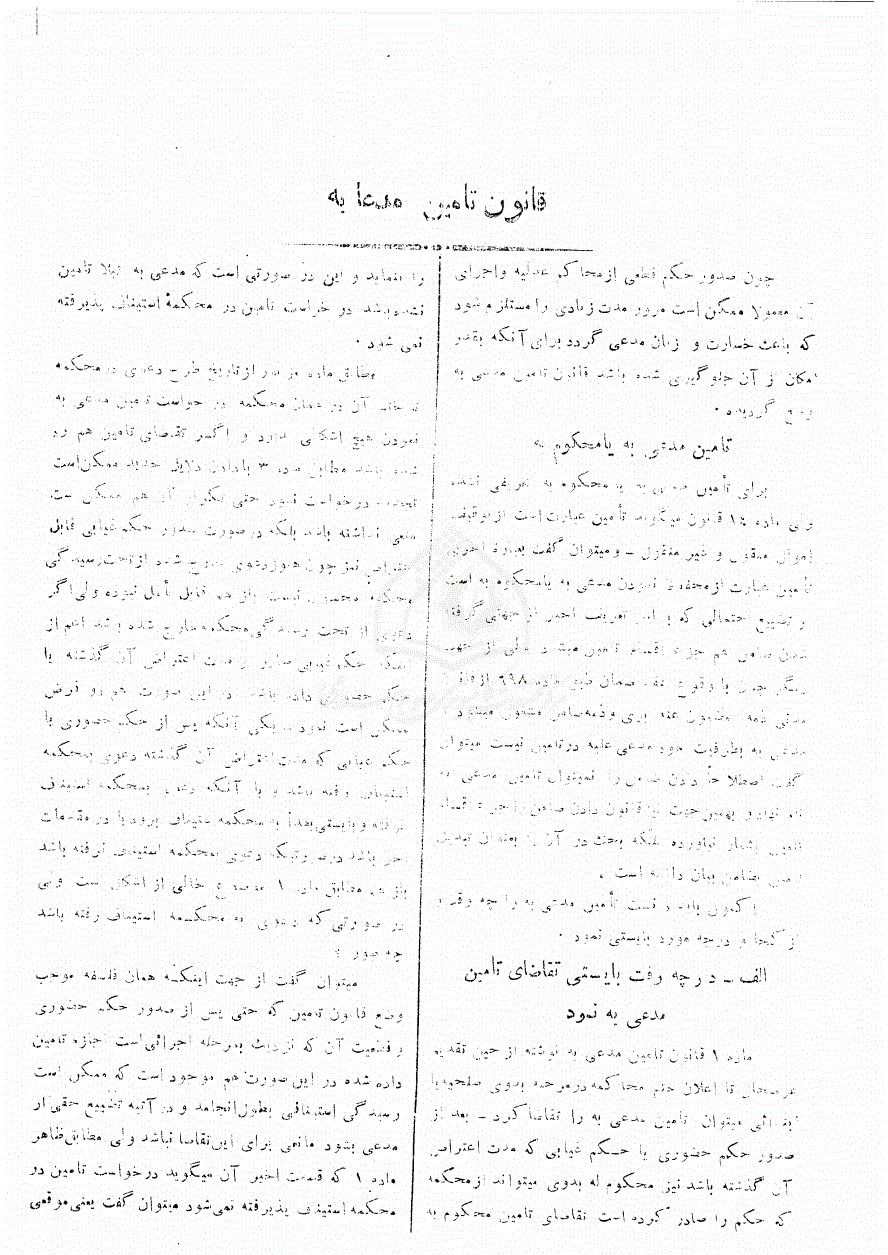 قانون تامین مدعا به
چون صدور حکم قطعی از محاکم عدلیه و اجرای
آن معمولا ممکن است مرور مدت زیادی را مستلزم شود
که باعث خسارت و زیان مدعی گردد برای آنکه بقدر
امکان از آن جلوگیری شده باشد قانون تامین مدعی به
وضع گردیده .
تامین مدعی به یا محکوم به
برای تأمین مدعی به یا محکوم به تعریفی نشده
ولی ماده ١٤ قانون میگوید تأمین عبارت است از توقیف
اموال منقول و غیر منقول ـ و میتوان گفت بعبارة اخری
تأمین عبارت از محفوظ نمودن مدعی به یا محکوم به است
از تضییع احتمالی که با این تعریف اخیر از جهتی گرفته
شدن ضامن هم جزء اقسام تامین میشود ولی از جهت
دیگر چون با وقوع عقد ضمان طبق ماده ٦٩٨ از قانون
مدنی ذمه مضمون عنه بری و ذمه ضامن مشغول میشود
مدعی به بطرفیت خود مدعی علیه در تامین نیست میتوان
گفت اصطلاحاً دادن ضامن را نمیتوان تامین مدعی به
نام نهاد و بهمین جهت نیز قانون دادن ضامن را جزء اقسام
تامین بشمار نیاورده بلکه بحث در آن را بعنوان تبدیل
تامین بضامن بیان داشته است .
اکنون بایست دانست تأمین مدعی به را چه وقت و
از کجا و در چه مورد بایستی نمود .
الف ـ در چه وقت بایستی تقاضای تامین
مدعی به نمود
ماده ١ قانون تامین مدعی به نوشته از حین تقدیم
عرضحال تا اعلان ختم محاکمه در مرحله بدوی صلحیه یا
ابتدائی میتوان تامین مدعی به را تقاضا کرد ـ بعد از
صدور حکم حضوری یا حکم غیابی که مدت اعتراض
آن گذشته باشد نیز محکوم له بدوی میتواند از محکمه
که حکم را صادر کرده است تقاضای تامین محکوم به
را بنماید و این در صورتی است که مدعی به قبلا تامین
نشده باشد در خواست تامین در محکمهٔ استیناف پذیرفته
نمی شود .
مطابق ماده مزبور از تاریخ طرح دعوی در محکمه
تا خاتمه آن در همان محکمه در خواست تامین مدعی به
نمودن هیچ اشکالی ندارد و اگر تقاضای تامین هم رد
شده باشد مطابق ماده ٣ با دادن دلایل جدید ممکن است
تجدید درخواست نمود حتی تکرار آن هم ممکن است
منعی نداشته باشد بلکه در صورت صدور حکم غیابی قابل
اعتراض نیز چون هنوز دعوی خارج شده از تحت رسیدگی
محکمه محسوب نیست باز هم قابل تأمل نبوده ولی اگر
دعوی از تحت رسیدگی محکمه خارج شده باشد اعم از
اینکه حکم غیابی صادر و مدت اعتراض آن گذشته یا
حکم حضوری داده باشد در این صورت هم دو فرض
ممکن است نمود . یکی آنکه پس از حکم حضوری یا
حکم غیابی که مدت اعتراض آن گذشته دعوی بمحکمه
استیناف رفته باشد و یا آنکه دعوی بمحکمه استیناف
نرفته و بایستی بعداً به محکمه استیناف برود یا در مقدمات
اجرا باشد در صورتیکه دعوی بمحکمه استیناف نرفته باشد
باز هم مطابق ماده ١ موضوع خالی از اشکال است ولی
در صورتی که دعوی به محکمه استیناف رفته باشد
چه صور ؟
میتوان گفت از جهت اینکه همان فلسفه موجب
وضع قانون تامین که حتی پس از صدور حکم حضوری
و قطعیت آن که نزدیک بمرحله اجرائی است اجازه تامین
داده شده در این صورت هم موجود است که ممکن است
رسیدگی استینافی بطول انجامد و در آتیه تضییع حقی از
مدعی بشود مانعی برای این تقاضا نباشد ولی مطابق ظاهر
ماده ١ که قسمت اخیر آن میگوید درخواست تامین در
محکمه استیناف پذیرفته نمی شود میتوان گفت یعنی موقعی